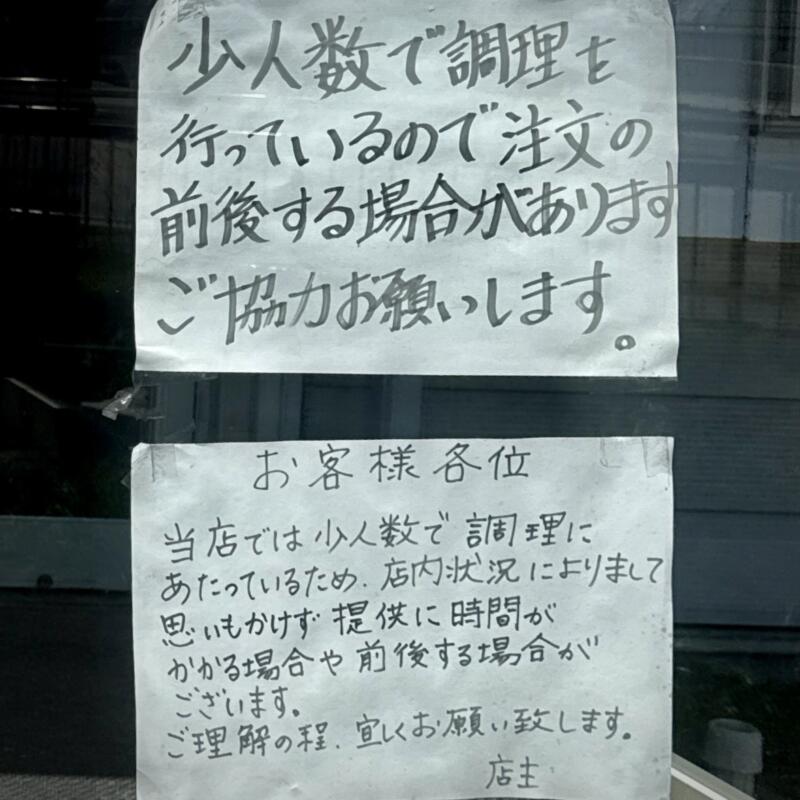 少人数で調理を
行っているので注文の
前後する場合があります
ご協力お願いします。
お客様各位
当店では少人数で調理に
あたっているため、店内状況によりまして
思いもかけず提供に時間が
かかる場合や前後する場合が
ございます。
ご理解の程、宜しくお願い致します。
店主